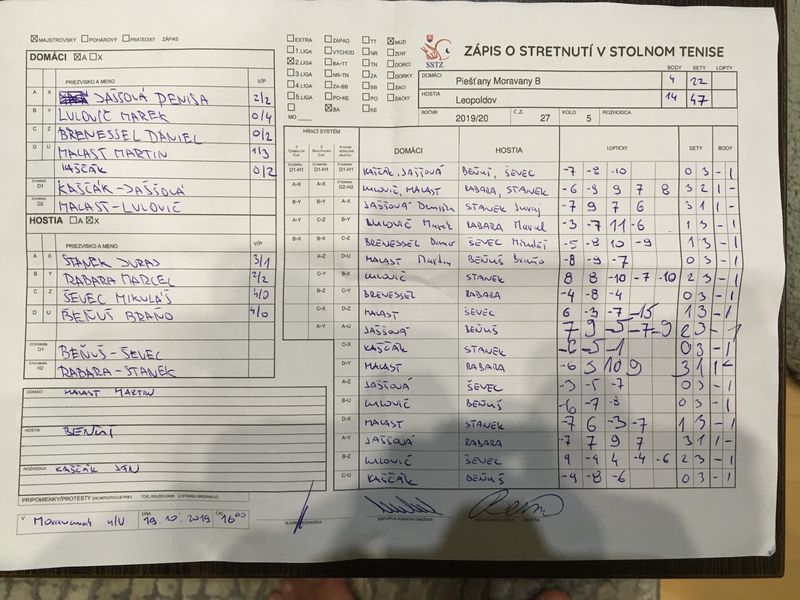 MAJSTROVSKÝ POHÁROVÝ PRIATEĽSKÝ ZÁPAS
DOMÁCI A X
PRIEZVISKO A MENO V/P
A X JAŠŠOVÁ DENISA 2/2
B Y LULOVIČ MAREK 0/4
C Z BRENESSEL DANIEL 0/2
D U MALAST MARTIN 1/3
KAŠČÁK 0/2
ŠTVORHRA D1 KAŠČÁK-JAŠŠOVÁ
ŠTVORHRA D2 MALAST-LULOVIČ
HOSTIA A X
PRIEZVISKO A MENO V/P
A X STANEK JURAJ 3/1
B Y RABARA MARCEL 2/2
C Z ŠEVEC MIKULÁŠ 4/0
D U BEŇUŠ BRAŇO 4/0
ŠTVORHRA D1 BEŇUŠ-ŠEVEC
ŠTVORHRA H2 RABARA-STANEK
DOMÁCI MALAST MARTIN
HOSTIA BEŇUŠ
ROZHODCA KAŠČÁK JÁN
PRIPOMIENKY/PROTESTY
V Moravanoch n/V DŇA 19.10.2019 ČAS 16:00
HLAVNÝ ROZHODCA
EXTRA ZÁPAD TT MUŽI
1.LIGA VÝCHOD NR ŽENY
2.LIGA BA-TT TN DORCI
3.LIGA NR-TN ZA DORKY
4.LIGA ZA-BB BB ŽIACI
5.LIGA PO-KE PO ŽIAČKY
BA KE
MO
SSTZ
ZÁPIS O STRETNUTÍ V STOLNOM TENISE
BODY SETY LOPTY
DOMÁCI Piešťany Moravany B 4 22
HOSTIA Leopoldov 14 47
ROČNÍK 2019/20 Č.Z. 27 KOLO 5 ROZHODCA
HRACÍ SYSTÉM DOMÁCI HOSTIA LOPTIČKY SETY BODY
D1-H1 D1-H1 D1-H1 KAŠČÁK, JAŠŠOVÁ BEŇUŠ, ŠEVEC -7 -8 -10 0 3 - 1
A-X A-X D2-H2 LULOVIČ, MALAST RABARA, STANEK -6 -9 9 7 8 3 2 1 -
B-Y B-Y A-X JAŠŠOVÁ Denisa STANEK Juraj -7 9 7 6 3 1 1 -
A-Y C-Z B-Y LULOVIČ Marek RABARA Marcel -3 -7 11 -6 1 3 - 1
B-X B-X C-Z BRENESSEL Dano ŠEVEC Mikuláš -5 -8 10 -9 1 3 - 1
A-Z D-U MALAST Martin BEŇUŠ Braňo -8 -9 -7 0 3 - 1
C-Y B-X LULOVIČ STANEK 8 8 -10 -7 -10 2 3 - 1
B-Z C-Y BRENESSEL RABARA -4 -8 -4 0 3 - 1
C-X D-Z MALAST ŠEVEC 6 -3 -7 -15 1 3 - 1
A-Y A-U JAŠŠOVÁ BEŇUŠ 7 9 -5 -7 -9 2 3 - 1
C-X KAŠČÁK STANEK -6 -5 -1 0 3 - 1
D-Y MALAST RABARA -6 3 10 9 3 1 1 -
A-Z JAŠŠOVÁ ŠEVEC -3 -5 -7 0 3 - 1
B-U LULOVIČ BEŇUŠ -6 -7 -8 0 3 - 1
D-X MALAST STANEK -7 6 -3 -7 1 3 - 1
A-Y JAŠŠOVÁ RABARA -7 7 9 7 3 1 1 -
B-Z LULOVIČ ŠEVEC 9 -9 4 -4 -6 2 3 - 1
C-U KAŠČÁK BEŇUŠ -9 -8 -6 0 3 - 1